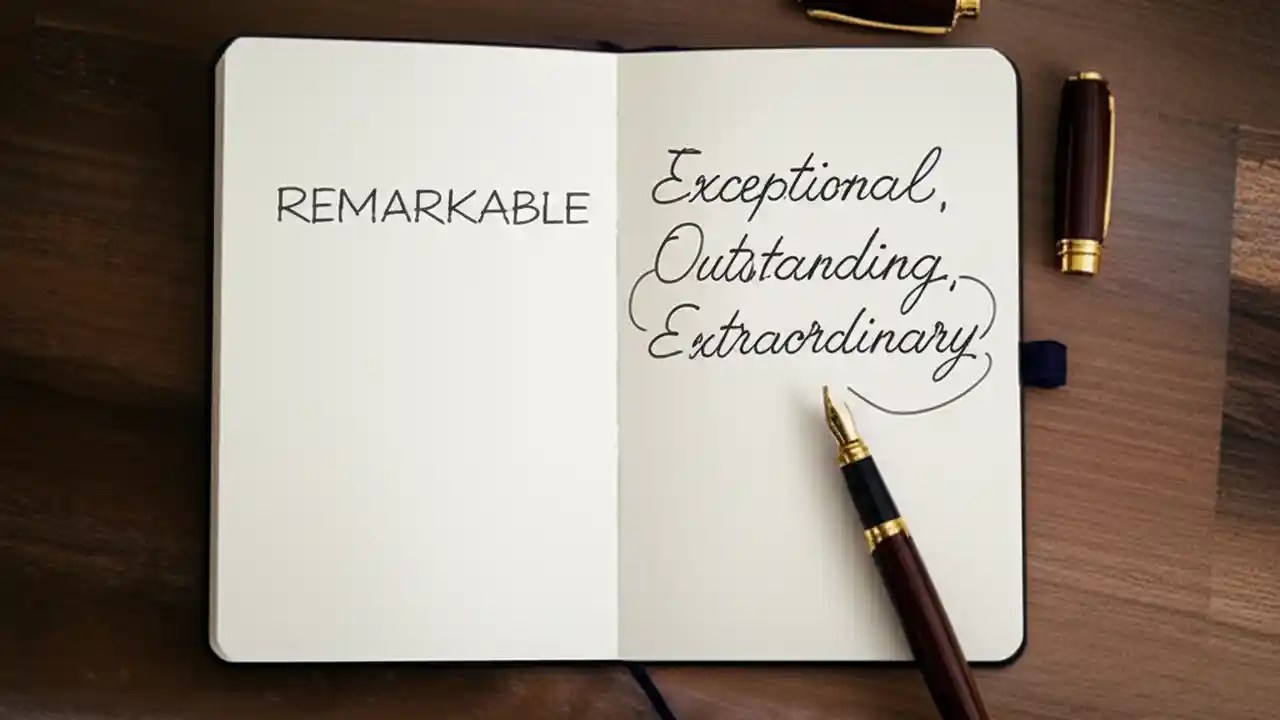 REMARKABLE
Exceptional,
Outstanding,
Extraordinary